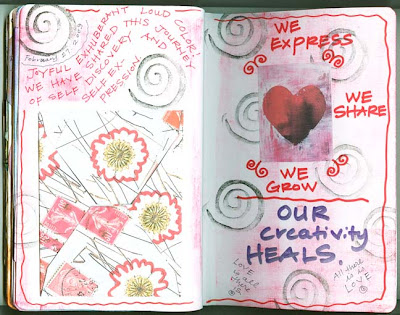 February 27, 2007
JOYFUL EXHUBERANT LOUD COLOR!
WE HAVE SHARED THIS JOURNEY
OF SELF DISCOVERY AND
SELF EX-
PRESSION
WE
EXPRESS
WE
SHARE
WE
GROW
OUR
Creativity
HEALS.
LOVE
is all
there
is
All there
is is
LOVE